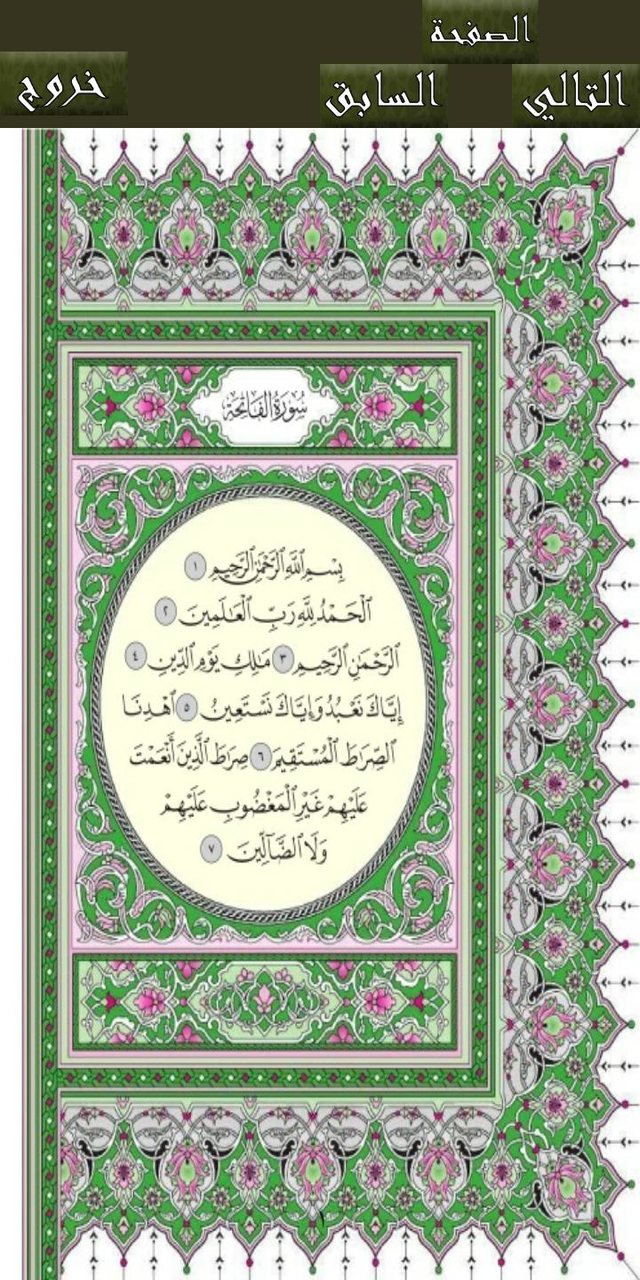 الصفحة
التالي
السابق
خروج
سُورَةُ الفَاتِحَةِ
بِسْمِ ٱللَّهِ ٱلرَّحْمَٰنِ ٱلرَّحِيمِ ١
ٱلْحَمْدُ لِلَّهِ رَبِّ ٱلْعَٰلَمِينَ ٢
ٱلرَّحْمَٰنِ ٱلرَّحِيمِ ٣ مَٰلِكِ يَوْمِ ٱلدِّينِ ٤
إِيَّاكَ نَعْبُدُ وَإِيَّاكَ نَسْتَعِينُ ٥ ٱهْدِنَا
ٱلصِّرَٰطَ ٱلْمُسْتَقِيمَ ٦ صِرَٰطَ ٱلَّذِينَ أَنْعَمْتَ
عَلَيْهِمْ غَيْرِ ٱلْمَغْضُوبِ عَلَيْهِمْ
وَلَا ٱلضَّآلِّينَ ٧
١